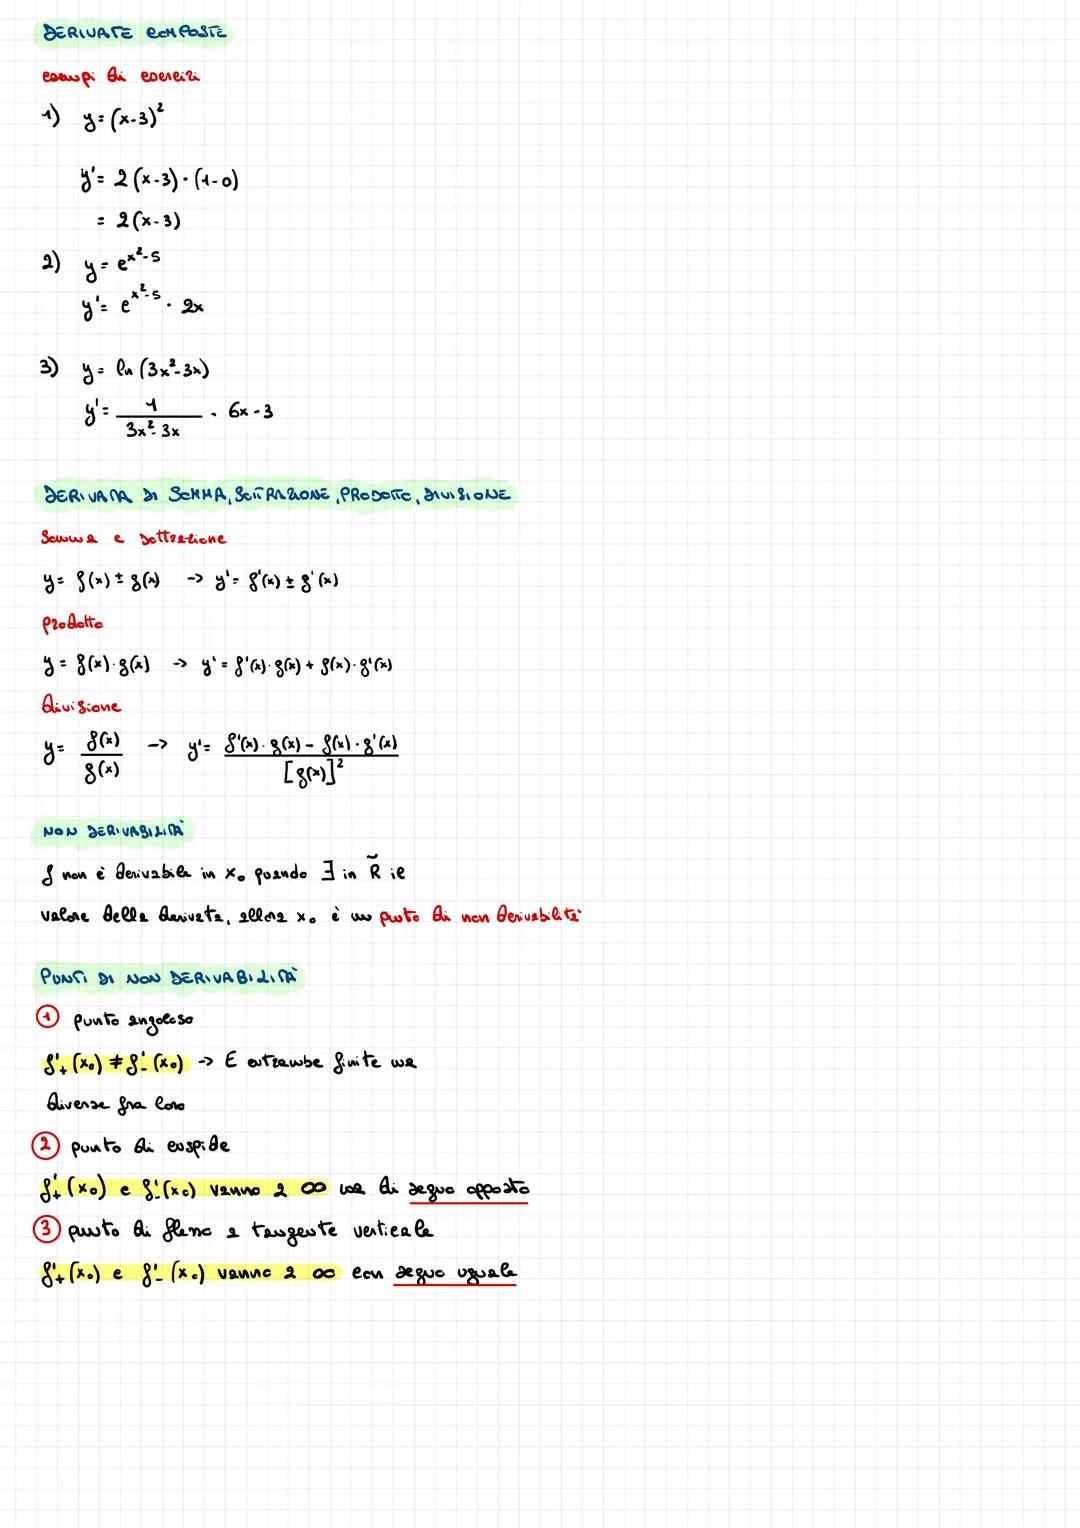 DERIVATE COMPOSTE
esempi di esercizi
1) y = (x-3)²
y' = 2(x-3)·(1-0)
= 2(x-3)
2) y = e^(x²-5)
y' = e^(x²-5) · 2x
3) y = ln (3x²-3x)
y' = 1/(3x²-3x) · 6x-3
DERIVATA DI SOMMA, SOTTRAZIONE, PRODOTTO, DIVISIONE
Somma e sottrazione
y = f(x) ± g(x) -> y' = f'(x) ± g'(x)
prodotto
y = f(x)·g(x) -> y' = f'(x)·g(x) + f(x)·g'(x)
divisione
y = f(x)/g(x) -> y' = (f'(x)·g(x) - f(x)·g'(x))/[g(x)]²
NON DERIVABILITÀ
f non è derivabile in x₀ quando ∃ in R̃ il
valore della derivata, allora x₀ è un punto di non derivabilità
PUNTI DI NON DERIVABILITÀ
1 punto angoloso
f'₊(x₀) ≠ f'₋(x₀) -> E entrambe finite ma
diverse fra loro
2 punto di cuspide
f'₊(x₀) e f'₋(x₀) vanno a ∞ ma di segno opposto
3 punto di flesso a tangente verticale
f'₊(x₀) e f'₋(x₀) vanno a ∞ con segno uguale